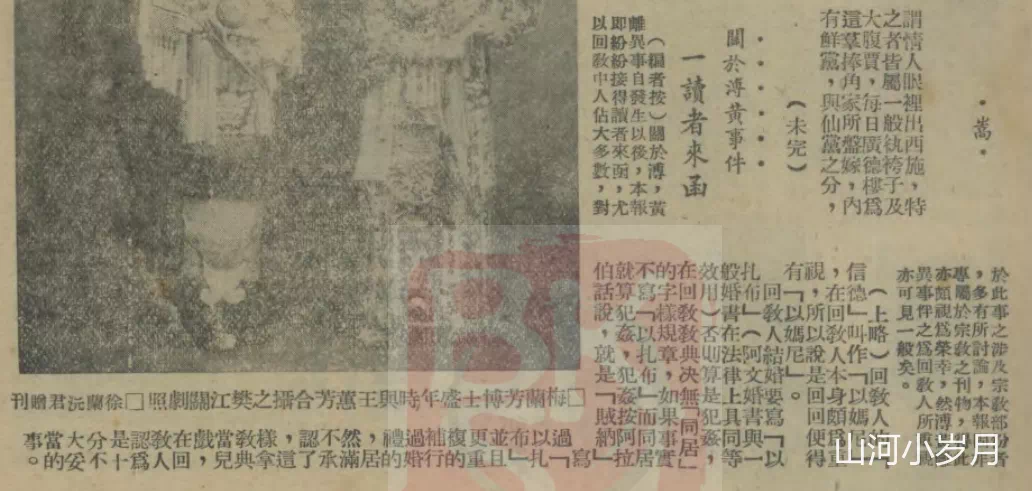 •嵩•
謂情人眼裡出西施，特
之者皆屬一般紈袴子及
大腹賈，每日廣德樓爲
這羣捧角家所盤嫁，內
有鮮黨，與仙黨之分，
（未完）
關於溥黃事件
一讀者來函
（編者按）關於溥，黃
離異事自發生以後，本報
即紛紛接得讀者來函，尤
以回敎中人佔大多數，對
於此事之涉及宗敎部
，多有所討論，本報
專屬於宗敎之刊物，
亦頗視爲榮幸，然溥
異事件之爲回敎人所
亦可見一般矣。
（上略）回敎人的「
信德」叫作「以媽
，在回敎人本身
視，所以說是回回便得
有「以媽尼」。
回敎人結婚要寫「以
扎布」（阿文婚書與一
般婚書在法律上具同等
效用）否則算是犯姦，
在回敎敎典决無「同居」
的字樣規章，如果事實
不寫「以扎布」而同居
就算犯姦，犯姦按阿拉
伯話說，就是「賊納」
□梅蘭芳博士盛年時與王蕙芳合攝之樊江關劇照□徐蘭沅君贈刊
寫過「以扎布」並且更重複的補行過婚禮的，居然滿不承認了，這樣拿敎典當兒戲，在回敎人認爲是十分不大妥當的事。
山河小岁月